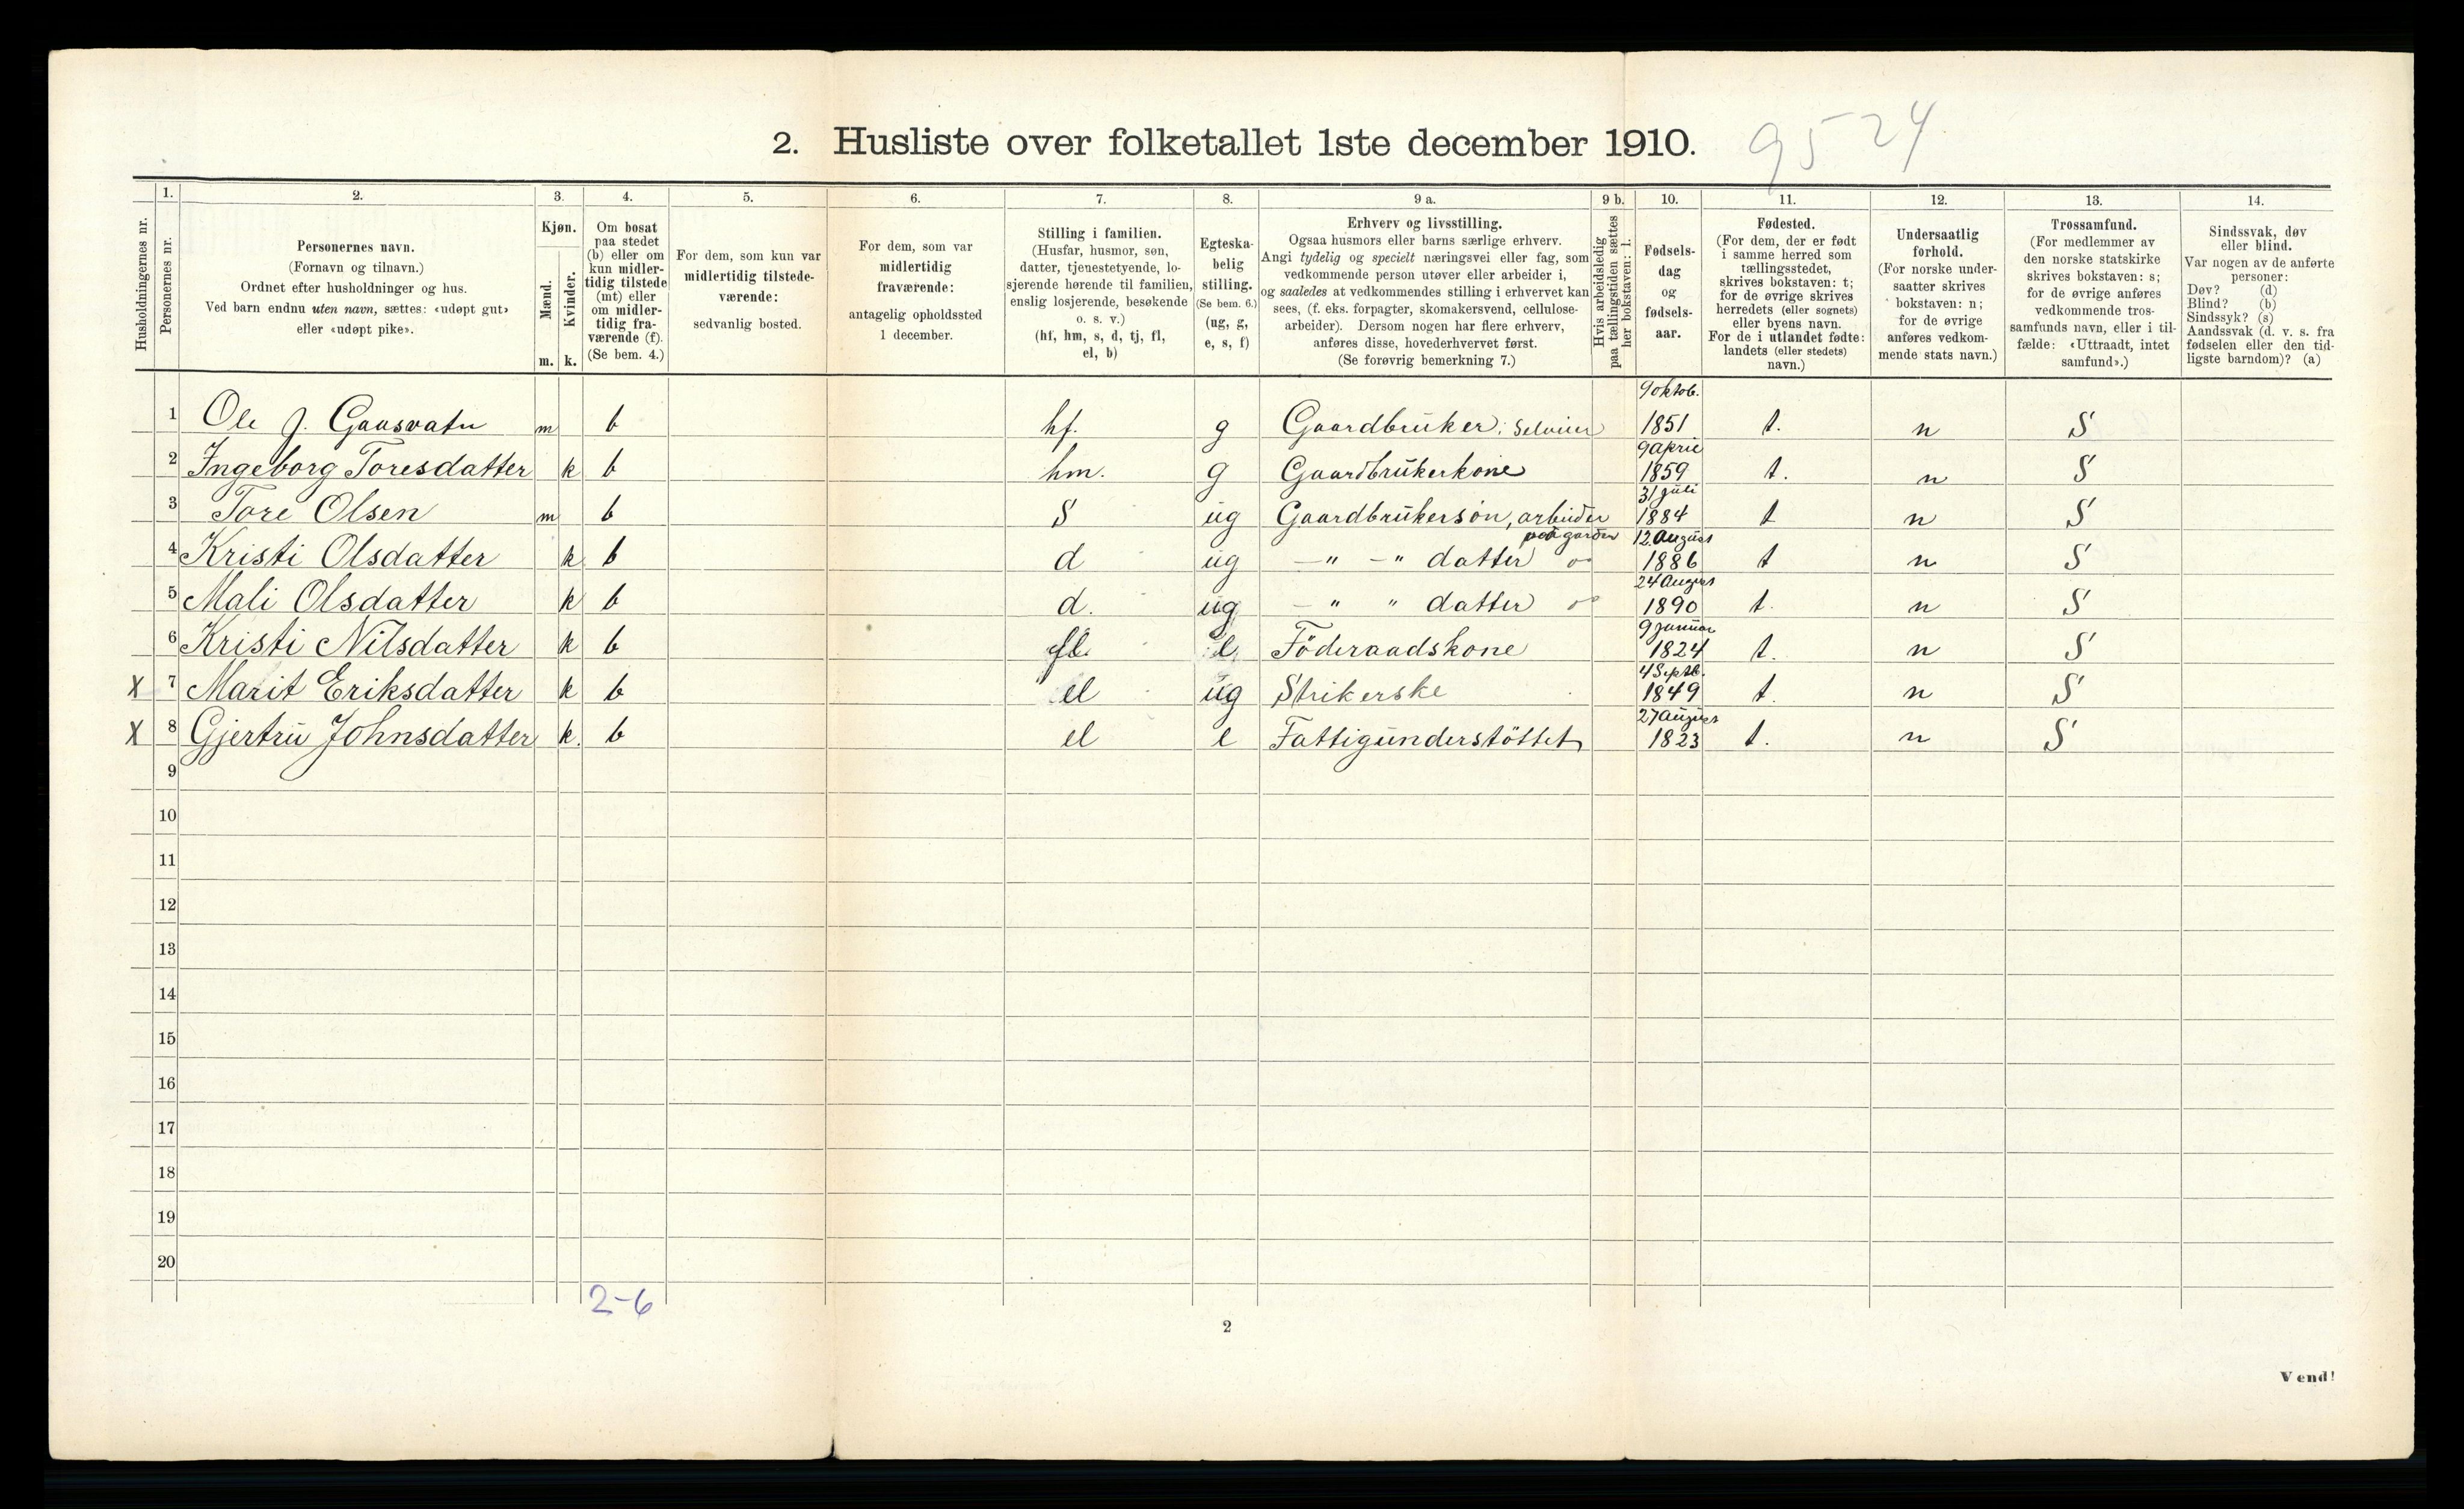 2. Husliste over folketallet 1ste december 1910.
9524
Husholdningernes nr.
1.
Personernes nr.
2.
Personernes navn.
(Fornavn og tilnavn.)
Ordnet efter husholdninger og hus.
Ved barn endnu uten navn, sættes: «udøpt gut»
eller «udøpt pike».
3.
Kjøn.
Mænd.
Kvinder.
m. k.
4.
Om bosat
paa stedet
(b) eller om
kun midler-
tidig tilstede
(mt) eller
om midler-
tidig fra-
værende (f).
(Se bem. 4.)
5.
For dem, som kun var
midlertidig tilstede-
værende:
sedvanlig bosted.
6.
For dem, som var
midlertidig
fraværende:
antagelig opholdssted
1 december.
7.
Stilling i familien.
(Husfar, husmor, søn,
datter, tjenestetyende, lo-
sjerende hørende til familien,
enslig losjerende, besøkende
o. s. v.)
(hf, hm, s, d, tj, fl,
el, b)
8.
Egteska-
belig
stilling.
(Se bem. 6.)
(ug, g,
e, s, f)
9 a.
Erhverv og livsstilling.
Ogsaa husmors eller barns særlige erhverv.
Angi tydelig og specielt næringsvei eller fag, som
vedkommende person utøver eller arbeider i,
og saaledes at vedkommendes stilling i erhvervet kan
sees, (f. eks. forpagter, skomakersvend, cellulose-
arbeider). Dersom nogen har flere erhverv,
anføres disse, hovederhvervet først.
(Se forøvrig bemerkning 7.)
9 b.
Hvis arbeidsledig
paa tællingstiden sættes
her bokstaven: l.
10.
Fødsels-
dag
og
fødsels-
aar.
11.
Fødested.
(For dem, der er født
i samme herred som
tællingsstedet,
skrives bokstaven: t;
for de øvrige skrives
herredets (eller sognets)
eller byens navn.
For de i utlandet fødte:
landets (eller stedets)
navn.)
12.
Undersaatlig
forhold.
(For norske under-
saatter skrives
bokstaven: n;
for de øvrige
anføres vedkom-
mende stats navn.)
13.
Trossamfund.
(For medlemmer av
den norske statskirke
skrives bokstaven: s;
for de øvrige anføres
vedkommende tros-
samfunds navn, eller i til-
fælde: «Uttraadt, intet
samfund».)
14.
Sindssvak, døv
eller blind.
Var nogen av de anførte
personer:
Døv? (d)
Blind? (b)
Sindssyk? (s)
Aandssvak (d. v. s. fra
fødselen eller den tid-
ligste barndom)? (a)
1 Ole J. Gaasvatn m b hf. g Gaardbruker: Selveier 9 oktob. 1851 t. n S
2 Ingeborg Toresdatter k b hm. g Gaardbrukerkone 9 April 1859 t. n S
3 Tore Olsen m b S ug Gaardbrukersøn, arbeider paa garden 31 juli 1884 t n S
4 Kristi Olsdatter k b d ug —" —" datter 12. August 1886 t n S
5 Mali Olsdatter k b d. ug —" " datter 24 August 1890 t. n S
6 Kristi Nilsdatter k b fl. e Föderaadskone 9 januar 1824 t. n S
X 7 Marit Eriksdatter k b el ug Strikerske 4 Septb. 1849 t. n S
X 8 Gjertru Johnsdatter k. b el e Fattigunderstöttet 27 August 1823 t. n S
9
10
11
12
13
14
15
16
17
18
19
20
2-6
2
Vend!